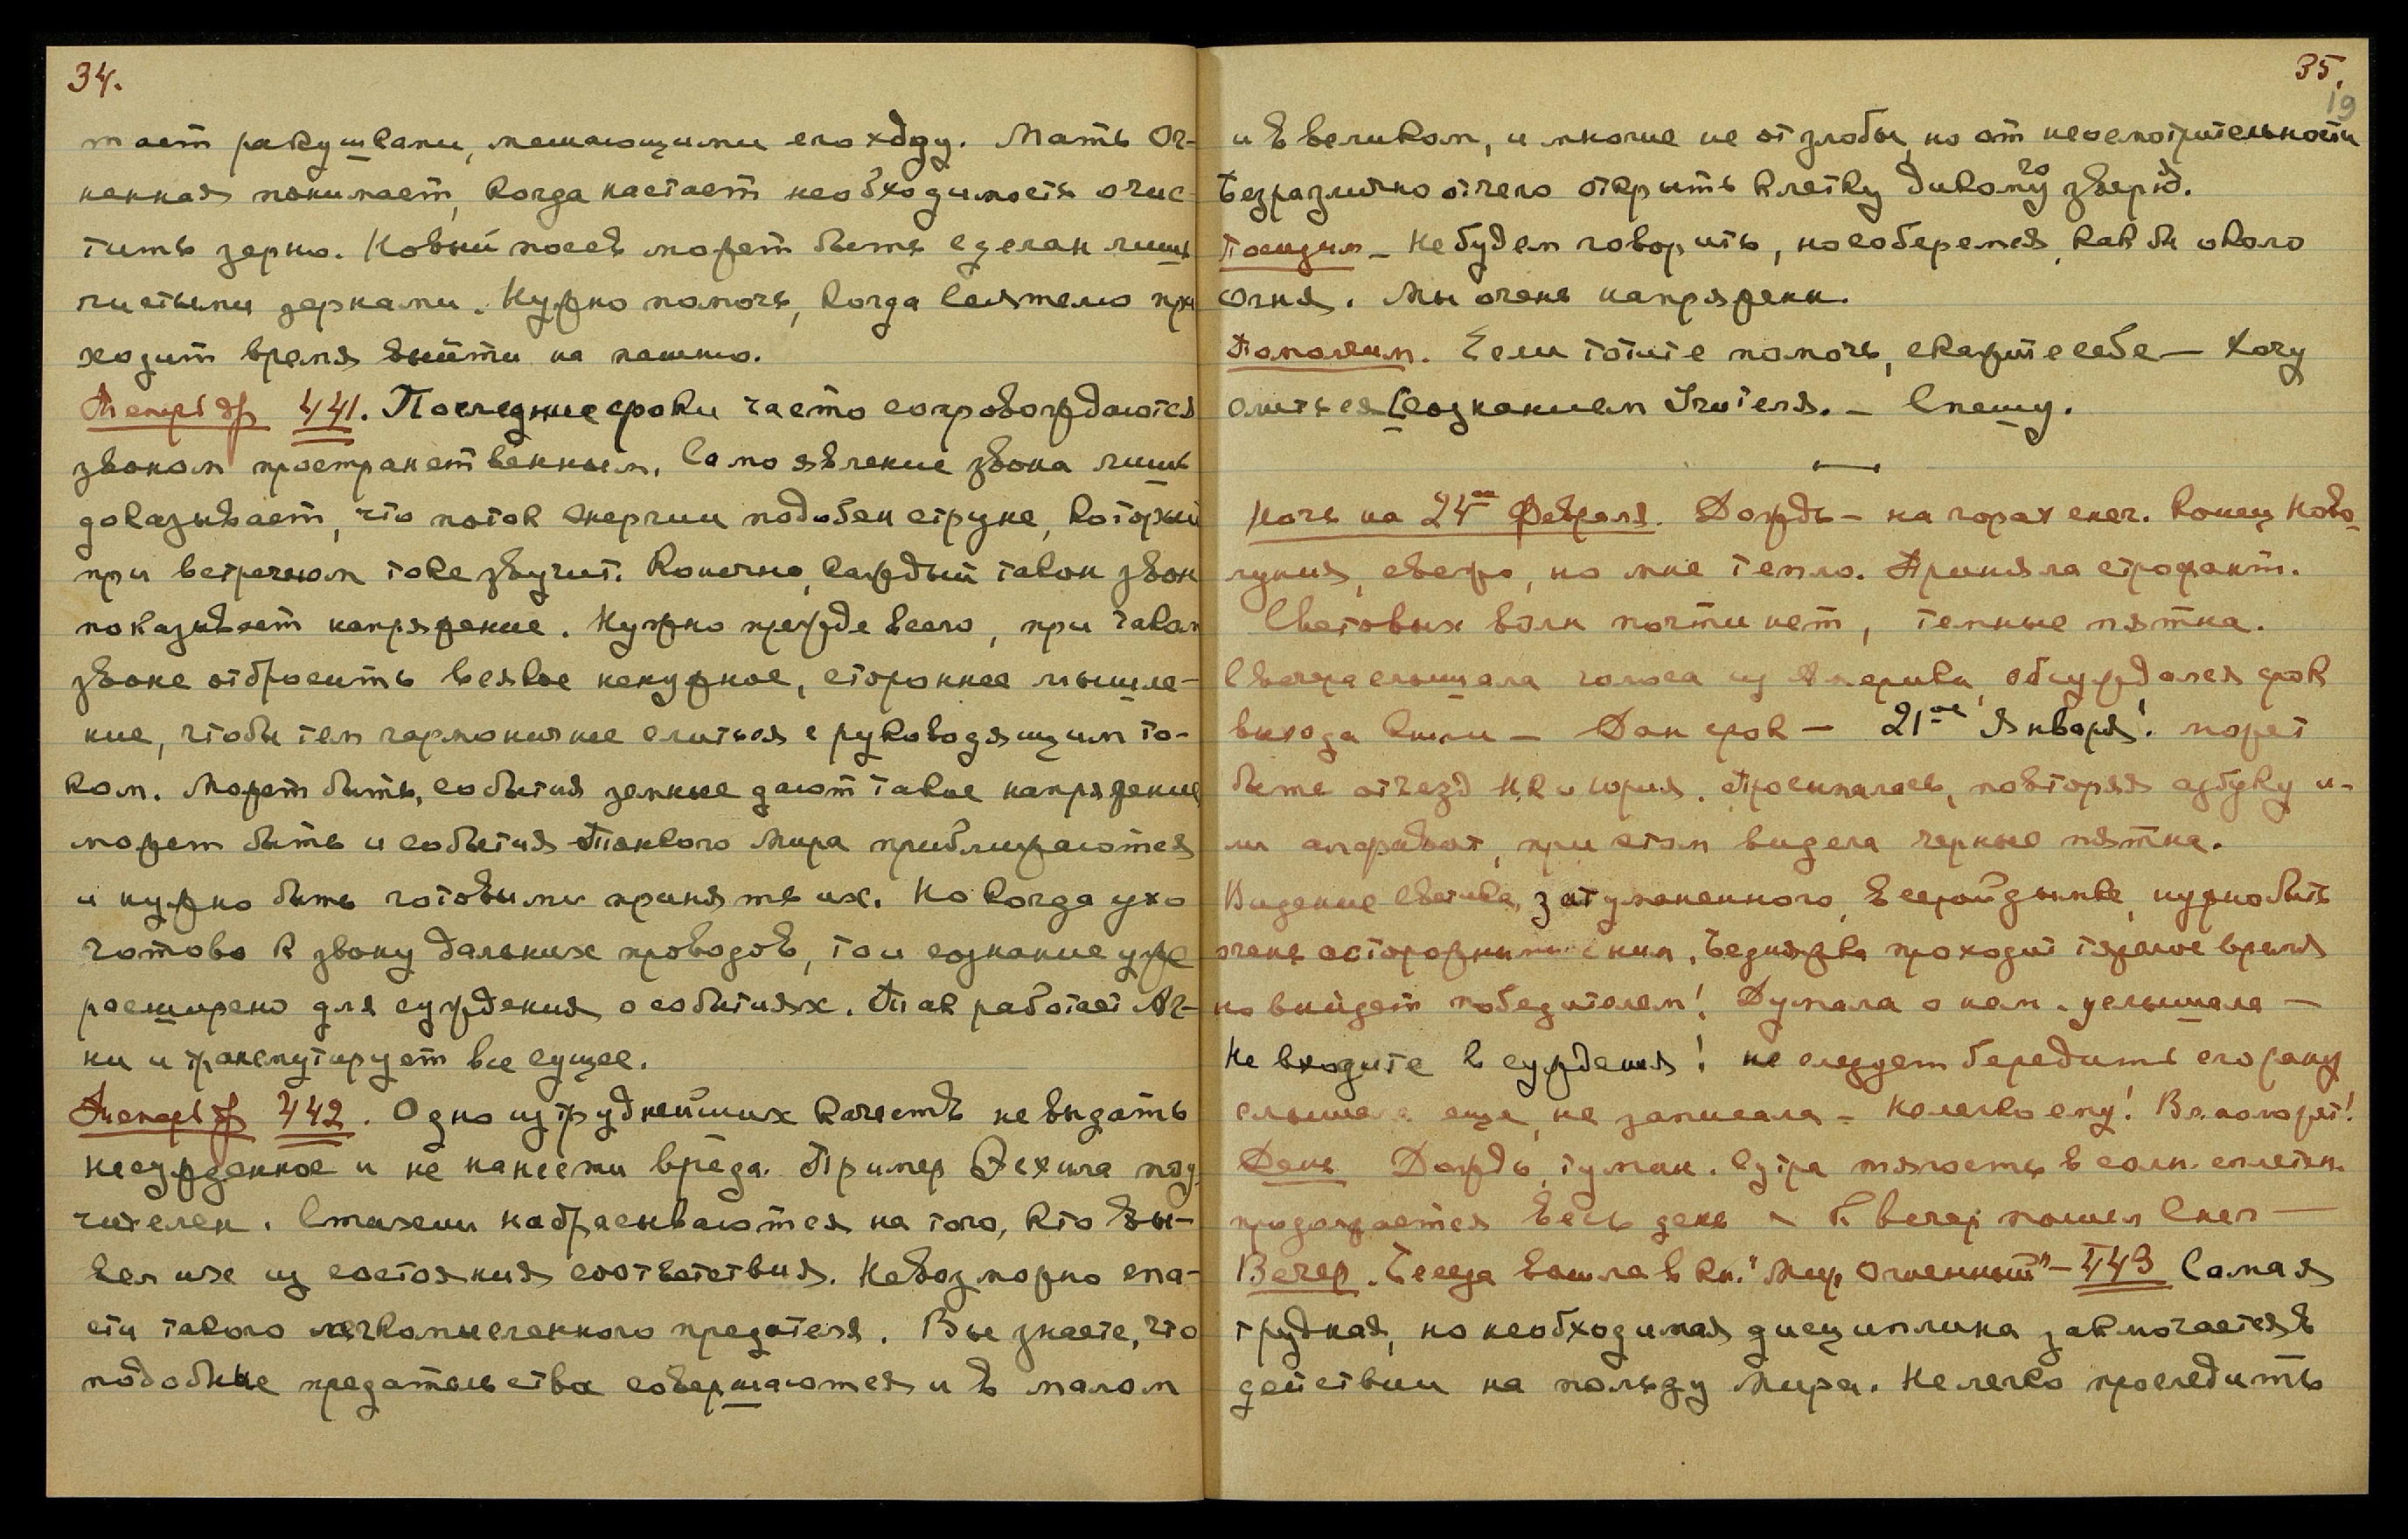 34.
тает ракушками, мешающими его ходу. Мать Ог-
ненная понимает, когда настает необходимость очис-
тить зерно. Новый посев может быть сделан лишь
чистыми зернами. Нужно помочь, когда сеятелю при
ходит время выйти на пашню.
Теперь др 441. Последние сроки часто сопровождаются
звоном пространственным. Само явление звона лишь
доказывает, что поток энергии подобен струне, который
при встречном токе звучит. Конечно, каждый такой звон
показывает напряжение. Нужно прежде всего, при таком
звоне отбросить всякое ненужное, стороннее мышле-
ние, чтобы тем гармоничнее слиться с руководящим то-
ком. Может быть, события земные дают такое напряжение
может быть и события Тонкого Мира приближаются
и нужно быть готовыми принять их. Но когда ухо
готово к звону дальних проводов, то и сознание уже
расширено для суждения о событиях. Так работает Аг-
ни и трансмутирует все сущее.
Теперь др 442. Одно из труднейших качеств не выдать
несужденное и не нанести вреда. Пример Эсхила поу-
чителен. Стихии набрасываются на того, кто вы-
вел их из состояния соответствия. Невозможно спа-
сти такого легкомысленного предателя. Вы знаете, что
подобные предательства совершаются и в малом
35.
19
и в великом, и многие не от злобы, но от неосмотрительности
Безразлично отчего открыть клетку дикому го зверю.
Посидим – Не будем говорить, но соберемся, как бы около
Огня. Мы очень напряжены.
Помолчим. Если хотите помочь, скажите себе – Хочу
слиться с Сознанием Учителя. – Спешу.
Ночь на 24ое Февраля. Дождь – на горах снег. Конец Ново-
луния, свежо, но мне тепло. Приняла строфант.
Световых волн почти нет, темные пятна.
С вечера слышала голоса из Америки, обсуждался срок
выхода книги – Дан срок – 21ое Января! может
быть отъезд Н.К и Юрия. Просыпалась, повторяя азбуку и-
ли алфавит, при этом видела черные пятна.
Видение Светика, затуманенного, в серой дымке, нужно быть
очень осторожными с ним, бедняжка проходит тяжелое время
но выйдет победителем! Думала о нем. услышала –
Не входите в суждения! не следует бередить его рану
слышала еще, не записала – Нелегко ему! Вл. поможет!
День Дождь, туман. С утра тягость в солн. сплетен.
продолжается весь день – К вечер пошел Снег –
Вечер. Беседа вошла в кн. "Мир Огненный" – 443 Самая
трудная, но необходимая дисциплина заключается в
действии на пользу Мира. Нелегко проследить